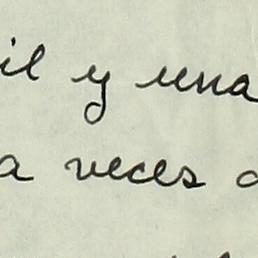 il y una
a veces